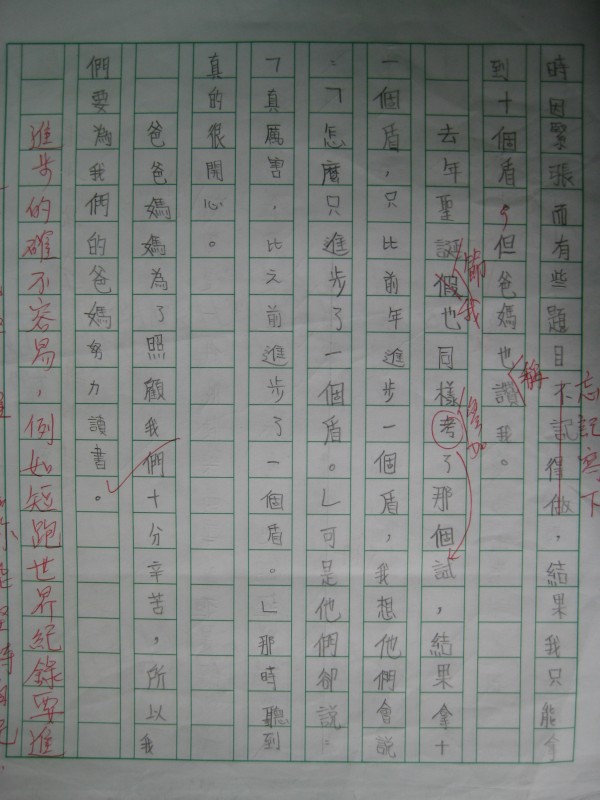 時因緊張而有些題目不記得做，結果我只能拿
忘記寫下
到十個盾。但爸媽也讚我。
稱
去年聖誕假也同樣考了那個試，結果拿十
節我
一個盾，只比前年進步一個盾，我想他們會說
：「怎麼只進步了一個盾。」可是他們卻說：
「真厲害，比之前進步了一個盾。」那時聽到
真的很開心。
爸爸媽媽為了照顧我們十分辛苦，所以我
們要為我們的爸媽努力讀書。
進步的確不容易，例如短跑世界紀錄要進